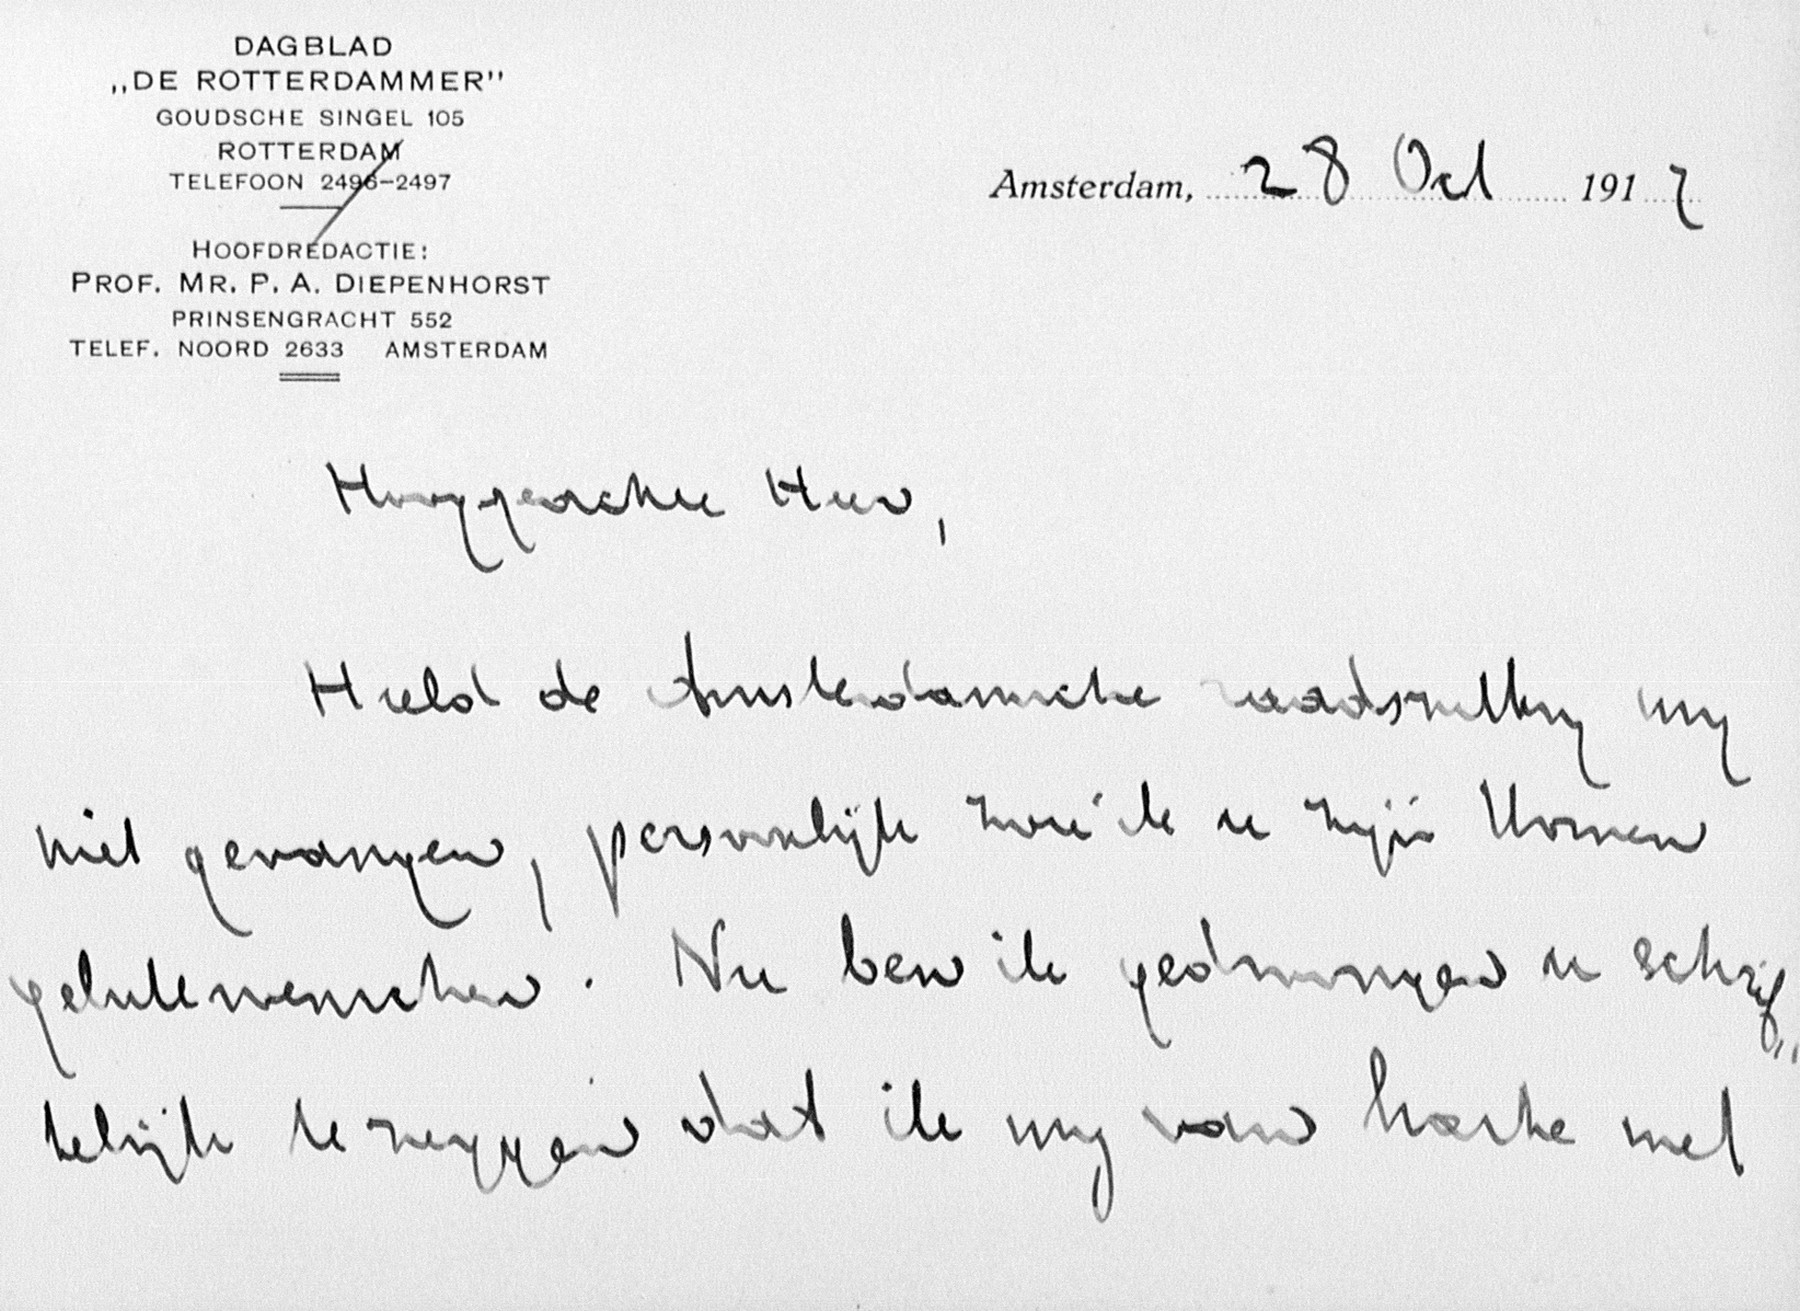 DAGBLAD
„DE ROTTERDAMMER"
GOUDSCHE SINGEL 105
ROTTERDAM
TELEFOON 2496-2497
HOOFDREDACTIE:
PROF. MR. P. A. DIEPENHORST
PRINSENGRACHT 552
TELEF. NOORD 2633 AMSTERDAM
Amsterdam, 28 Oct 1917
Hooggeachte Heer,
Hield de Amsterdamsche raadszitting mij
niet gevangen, persoonlijk zou ik u zijn komen
gelukwenschen. Nu ben ik gedwongen u schrif„
telijk te zeggen dat ik mij van harte met